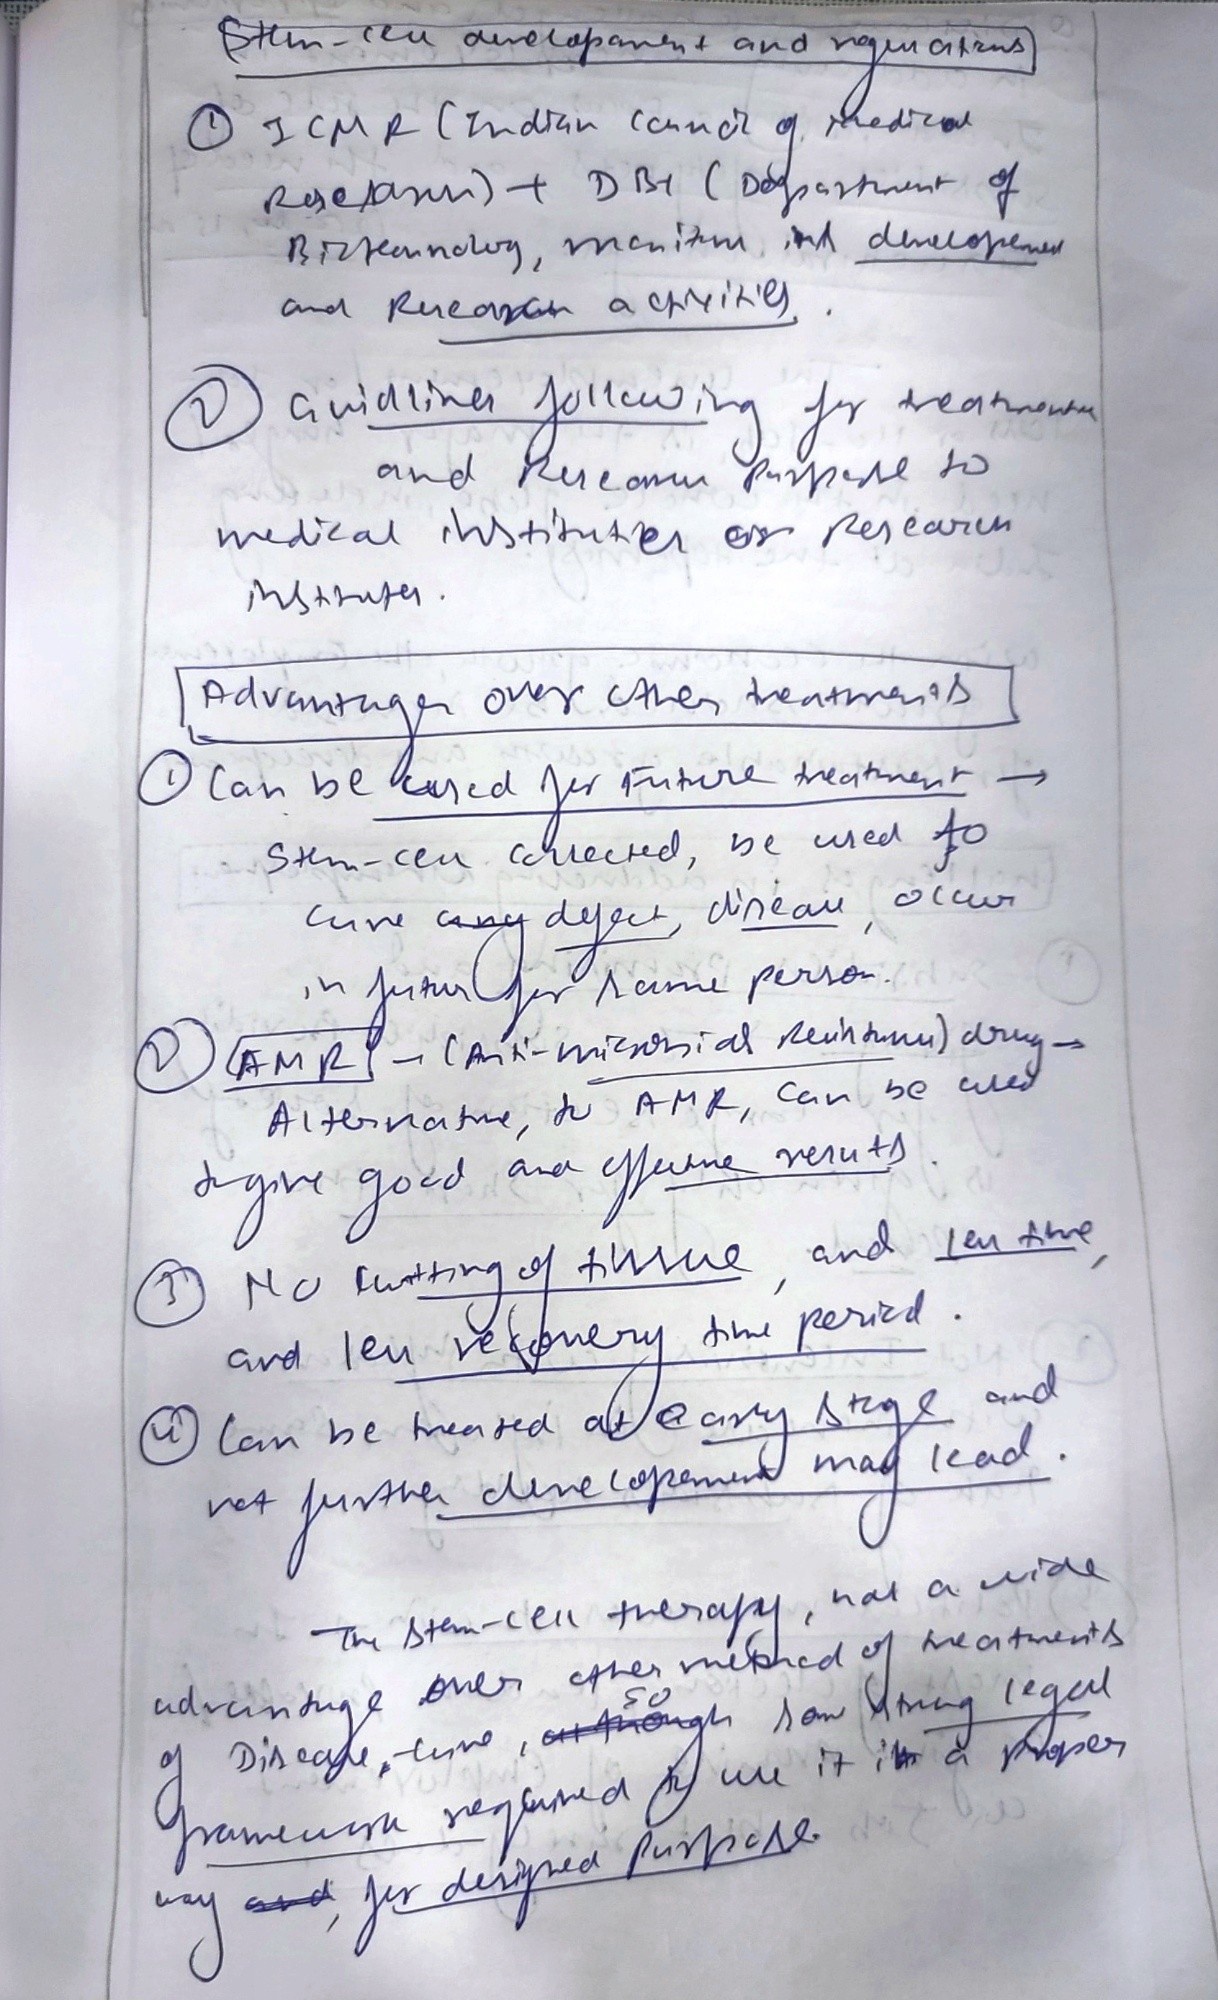 Stem-cell developement and regulations
① ICMR (Indian Council of medical
Research) + DBt (Department of
Biotechnology, monitor its developement
and Research activities.
② Guidlines following for treatment
and Research Purpose to
medical institutes or Research
institutes.
Advantages over other treatments
① Can be used for Future treatment →
Stem-cell collected, be used to
cure any defect, disease, occur
in future for same person.
② AMR → (Anti-microbial Resistance) drug →
Alternative, to AMR, can be used
to give good and effective results.
③ No cutting of tissue, and less time,
and less recovery time period.
④ Can be treated at early stage and
not further developement may lead.
The stem-cell therapy, has a wide
advantage over other method of treatments
of Disease, cure, although so some strong legal
framework required to use it in a proper
way and, for designed Purpose.